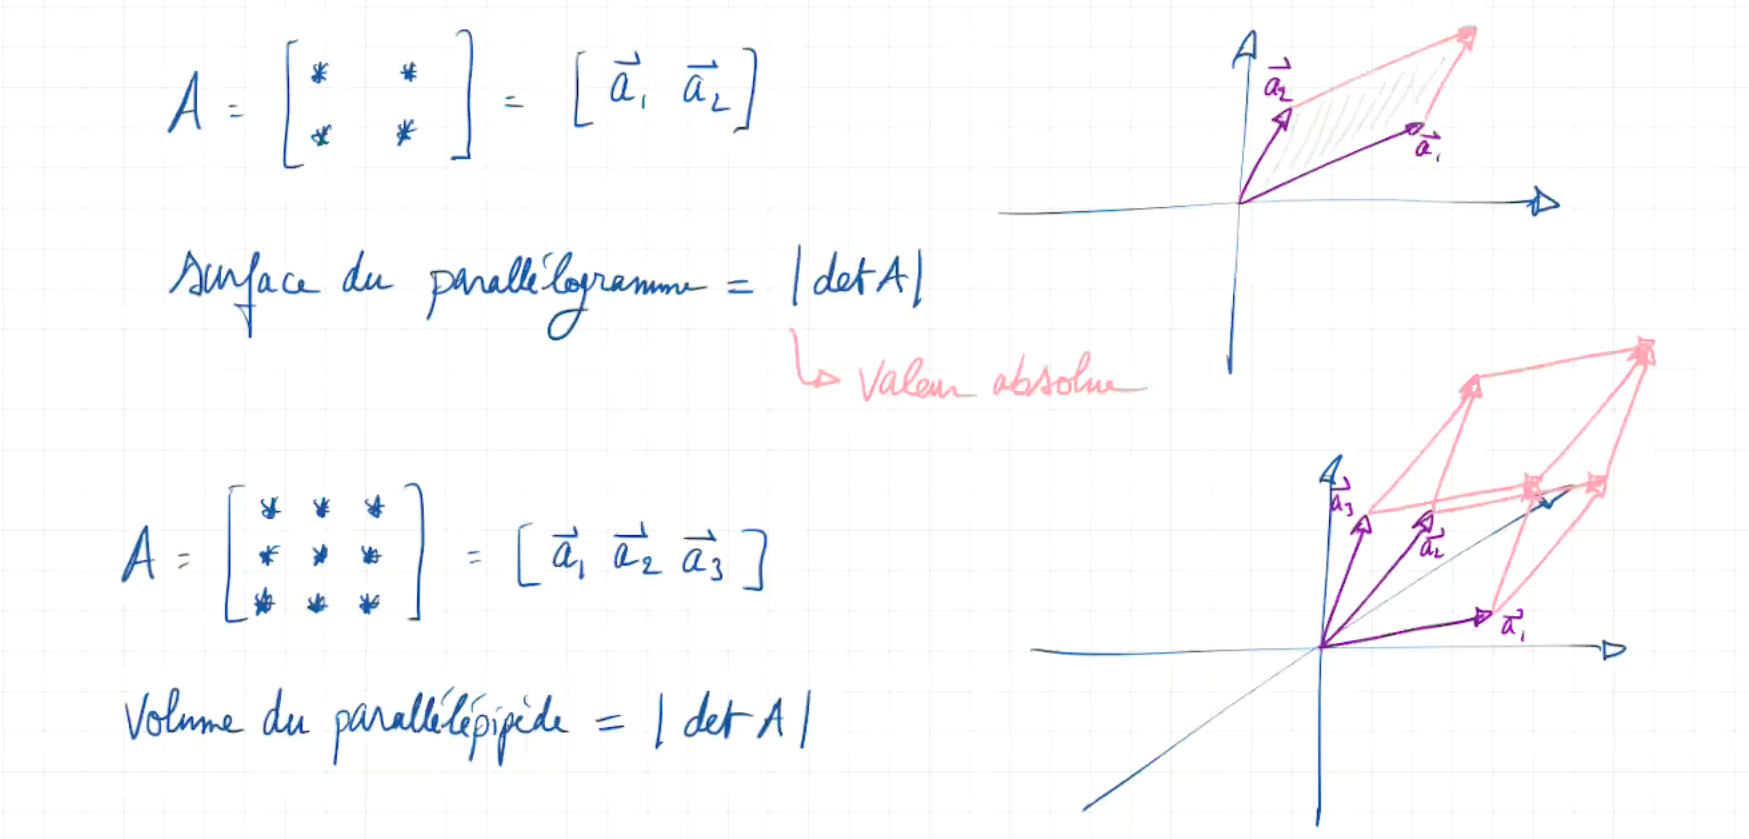 A = [ * * ; * * ] = [ a⃗₁ a⃗₂ ]
a⃗₂
a⃗₁
surface du parallélogramme = | det A |
valeur absolue
A = [ * * * ; * * * ; * * * ] = [ a⃗₁ a⃗₂ a⃗₃ ]
a⃗₃
a⃗₂
a⃗₁
Volume du parallélépipède = | det A |